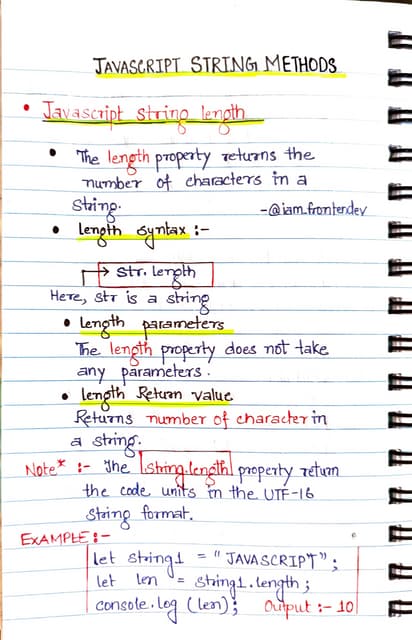 JAVASCRIPT STRING METHODS
• Javascript string length
• The length property returns the
number of characters in a
string.
-@iam_frontendev
• length syntax :-
→ str. length
Here, str is a string
• length parameters
The length property does not take
any parameters.
• length Return value
Returns number of character in
a string.
Note* :- The string.length property return
the code units in the UTF-16
string format.
EXAMPLE :-
let string1 = "JAVASCRIPT";
let len = string1.length;
console.log (len); Output :- 10